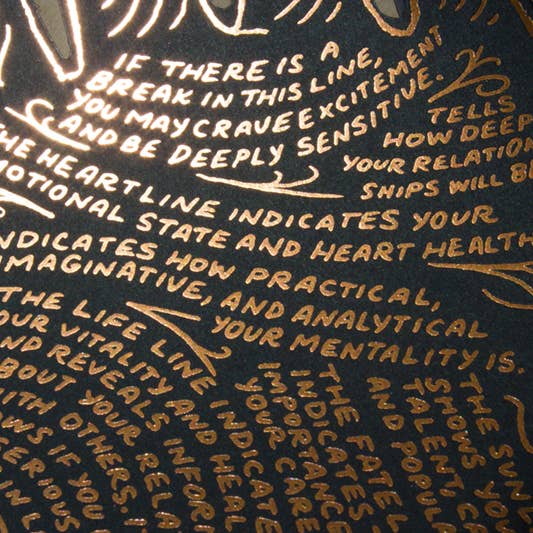 IF THERE IS A
BREAK IN THIS LINE,
YOU MAY CRAVE EXCITEMENT
AND BE DEEPLY SENSITIVE.
TELLS
HOW DEEP
YOUR RELATION
SHIPS WILL BE
THE HEART LINE INDICATES YOUR
MOTIONAL STATE AND HEART HEALTH
NDICATES HOW PRACTICAL,
IMAGINATIVE, AND ANALYTICAL
YOUR MENTALITY IS.
THE LIFE LINE INDICATE
OUR VITALITY AND HEALTH
ND REVEALS INFOR
BOUT YOUR RELA
WITH OTHERS.
OWS IF YOU
ERIOUS
IN L
THE FATE L
INDICATES
IMPORTANCE
YOUR CAREE
THE SUN
SHOWS YOU
TALENT
AND POPULA